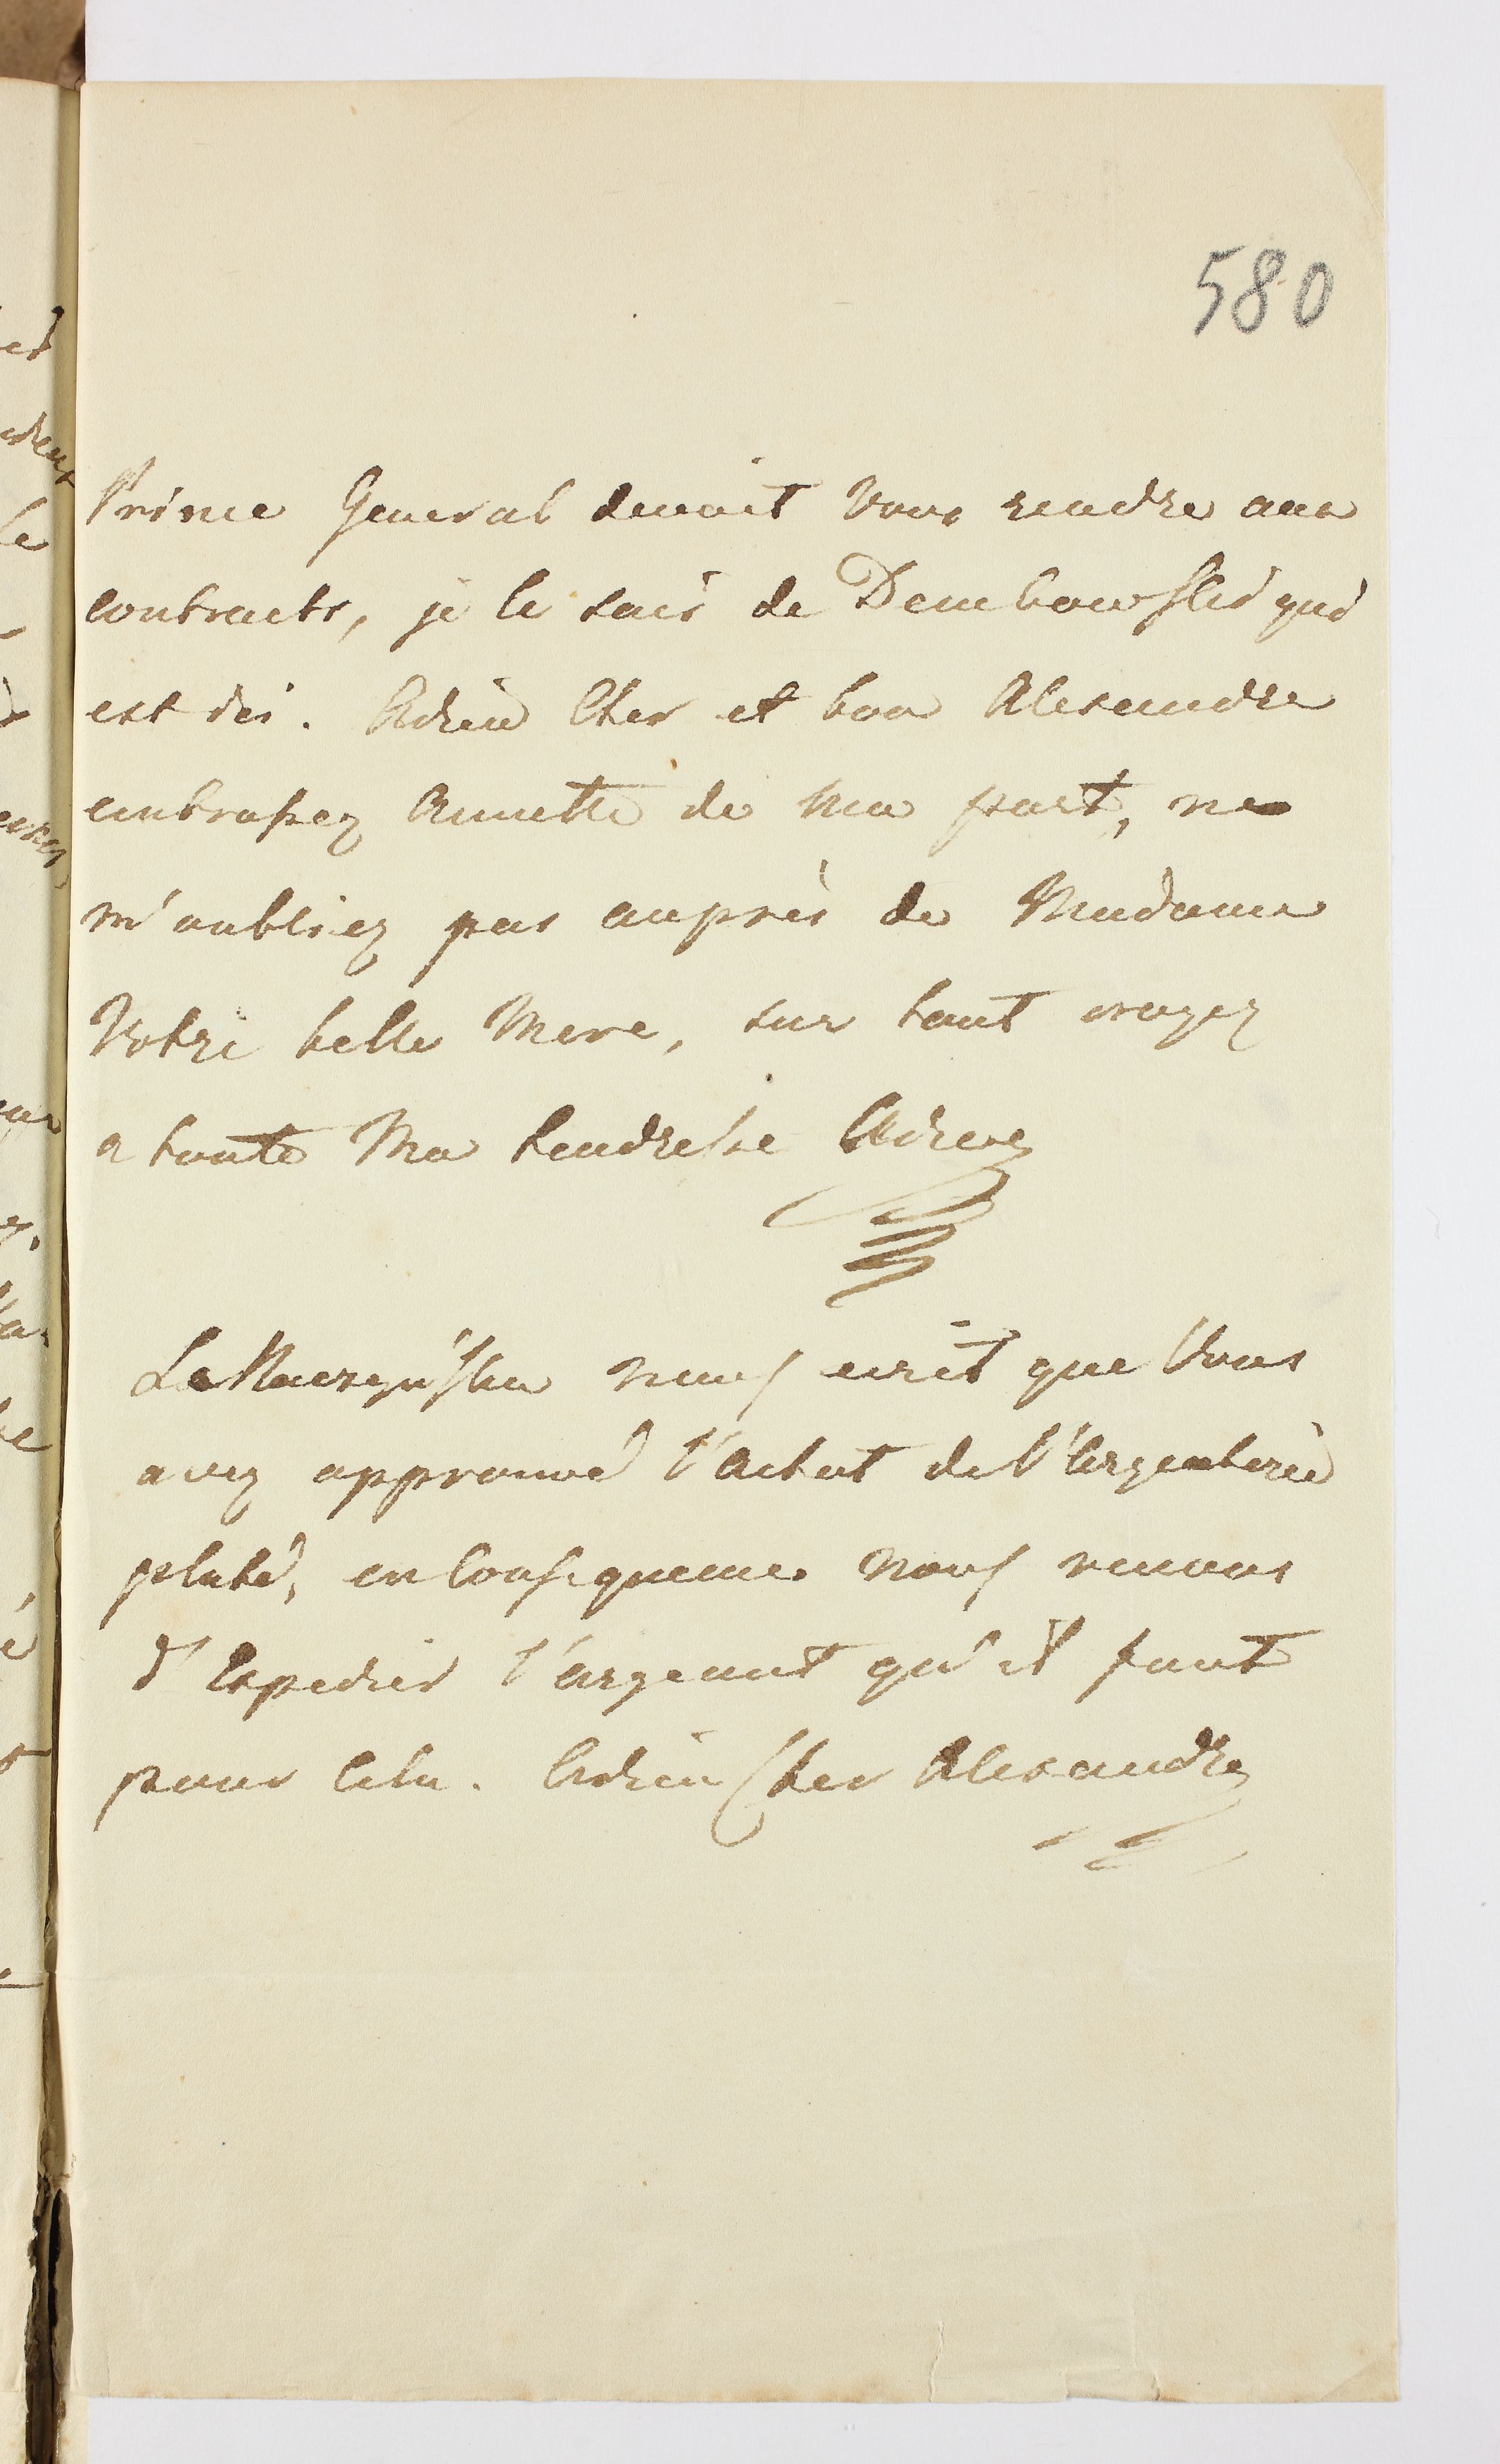 580
Prince General devoit Vous rendre aux
contracts, je le sais de Dembowski qui
est ici. Adieu Cher et bon Alexandre
embrassez Annette de Ma part, ne
m'oubliez pas auprès de Madame
Votre belle Mere, sur tout croyez
a toute Ma tendresse Adieu
nous ecrit que Vous
avez approuvé l'Achat de l'Argenterie
platé, en Consequence nous venons
d'Expedier l'argent qu'il faut
pour Cela. Adieu Cher Alexandre